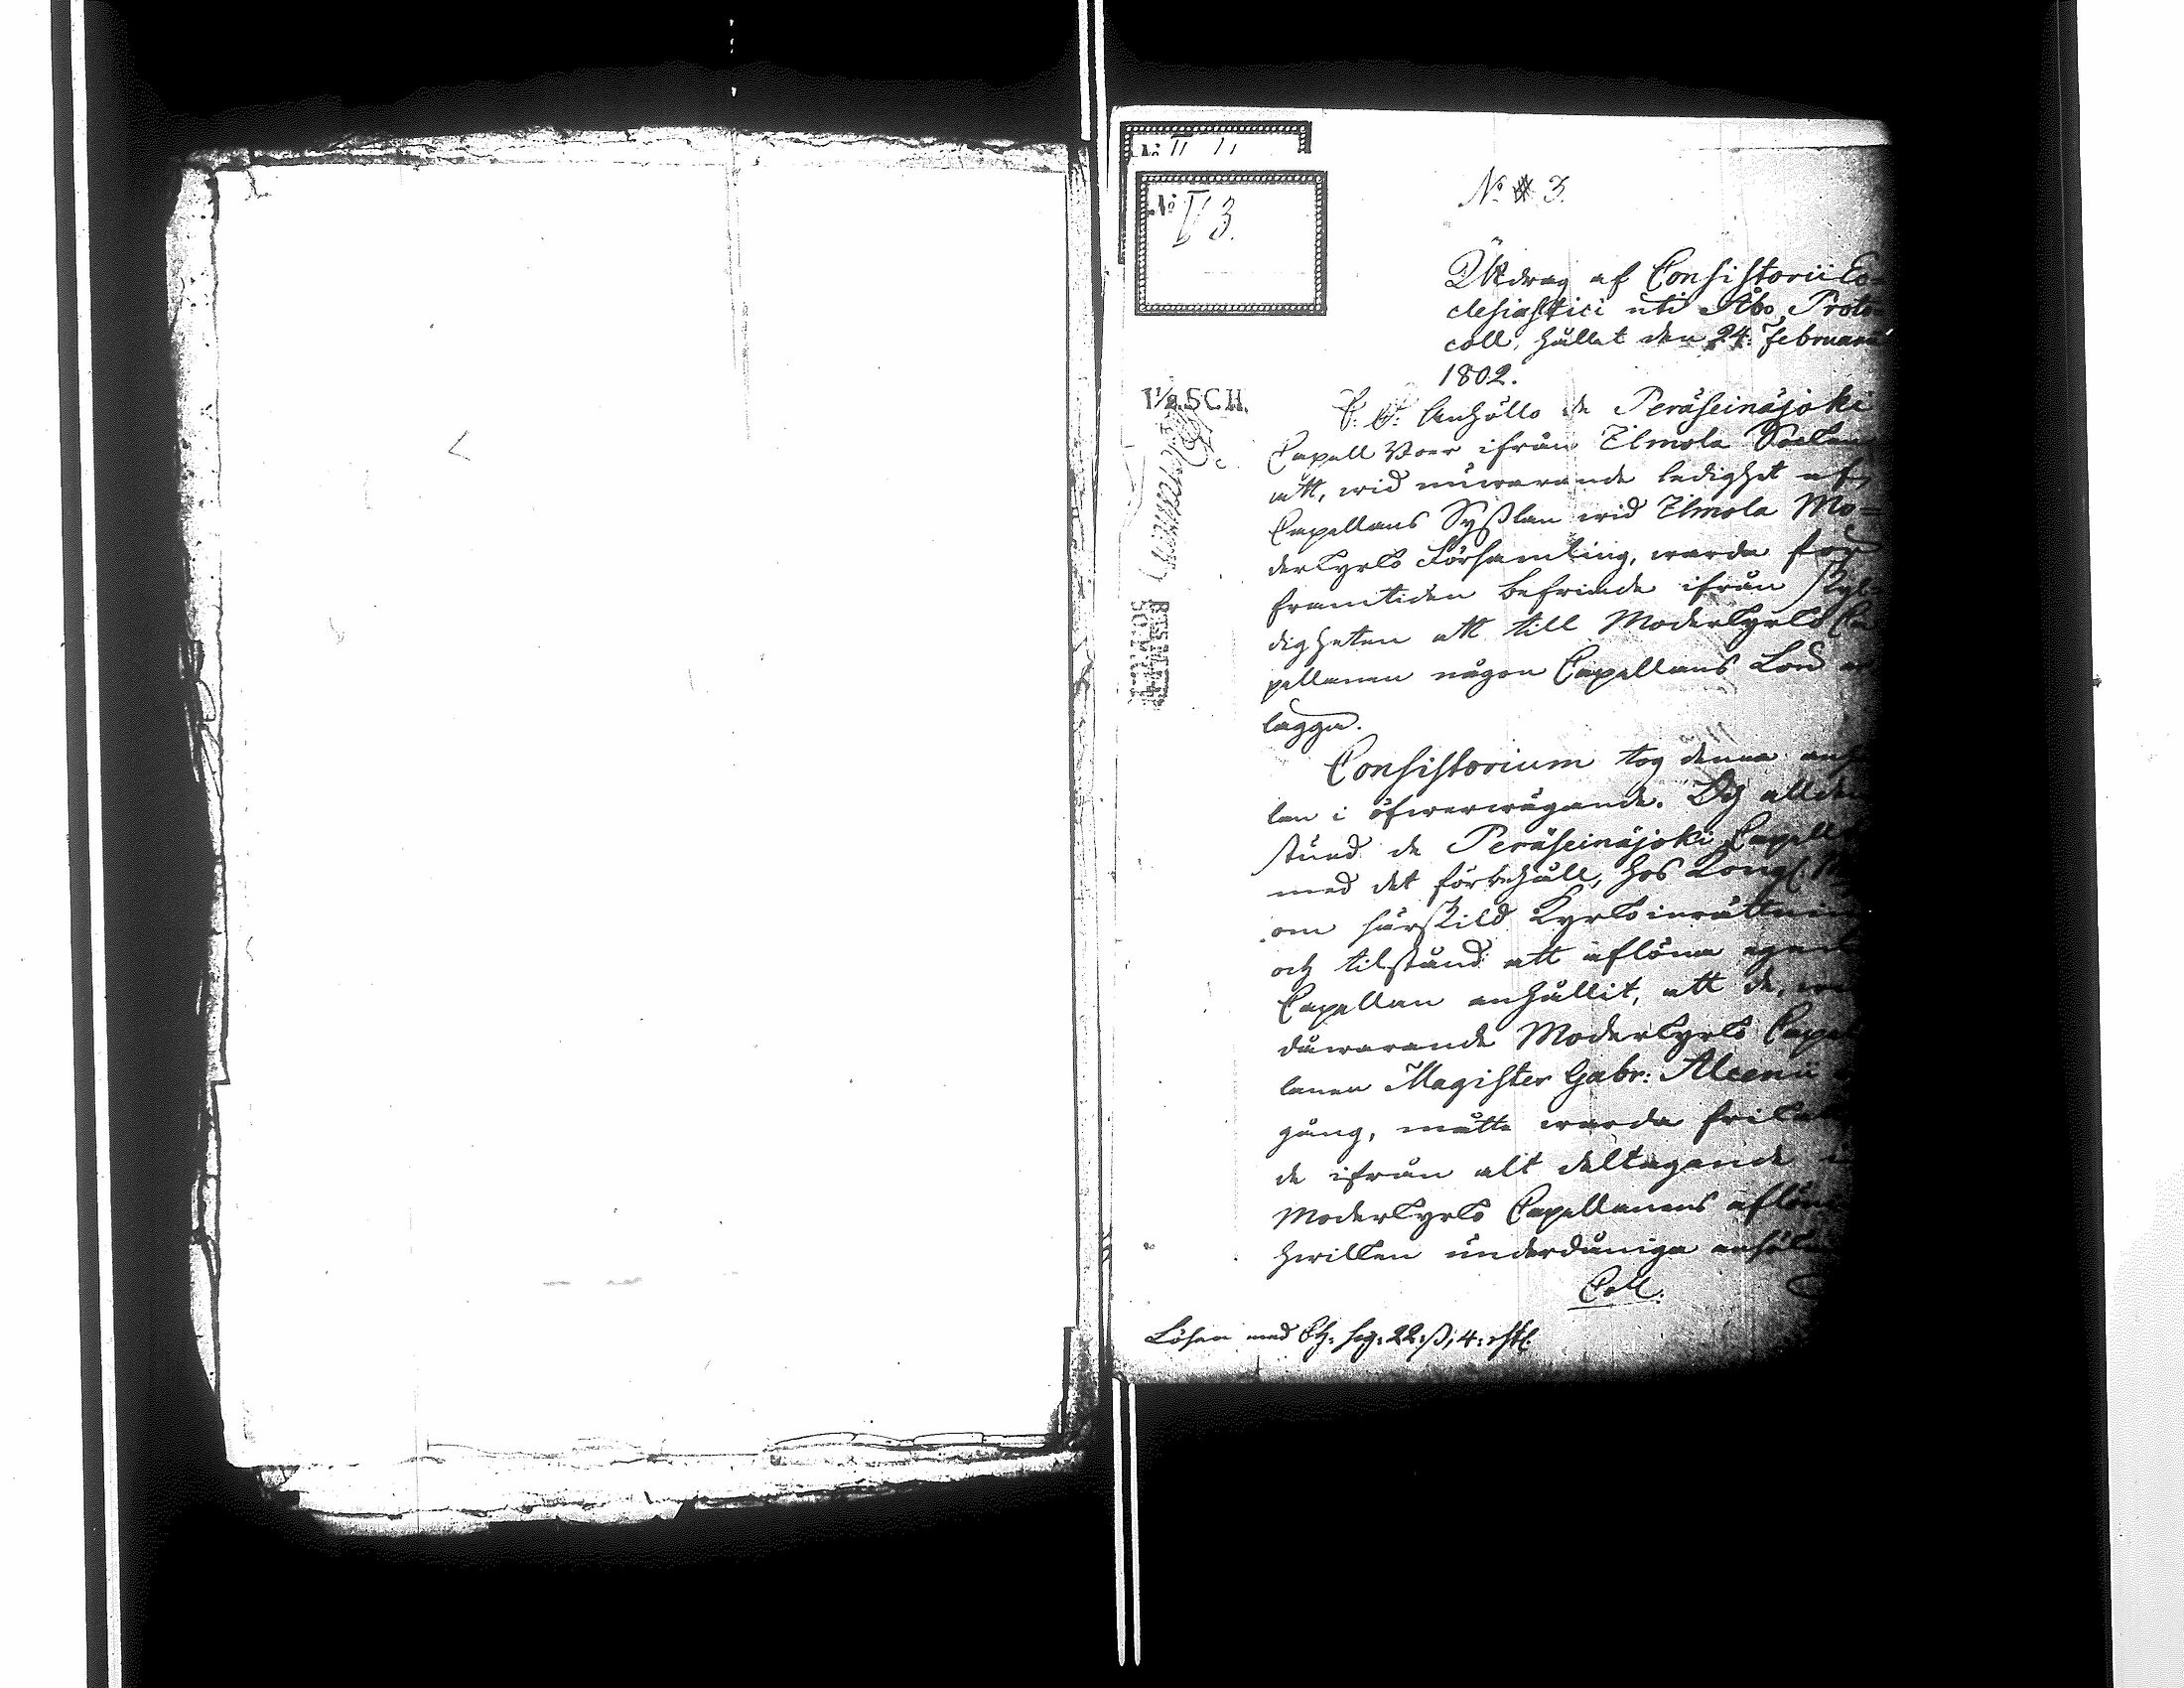 No 3.
No V 3.
Utdrag af Consistorii Ec-
clesiastici uti Åbo, Proto-
coll, hållet den 24 Februarii
1802.
1½ SCH.
S. D. Anhöllo de Peräseinäjoki
Capell Boer ifrån Ilmola Socken
att, wid nuwarande ledighet af
Capellans Sysslan wid Ilmola Mo-
derkyrko Församling, warda för
framtiden befriade ifrån skyl-
digheten att till Moderkyrko Ca
pellanen någon Capellans Lön er
lägga.
Consistorium tog denna
lan i öfwerwägande. Och allden
stund de Peräseinäjoki Capell
med det förbehåll, hos Kongl.
om särskild Kyrkoinrättning
och tilstånd att aflöna egen
Capellan anhållit, att de,
dåwarande Moderkyrko Capel
lanen Magister Gabr: Alcenii
gång, måtte warda frikall
de ifrån alt deltagande i
Moderkyrko Capellanens aflöni
hwilken underdåniga anhålan
Coll.
Lösen med Ch. Sig: 22 ß, 4: